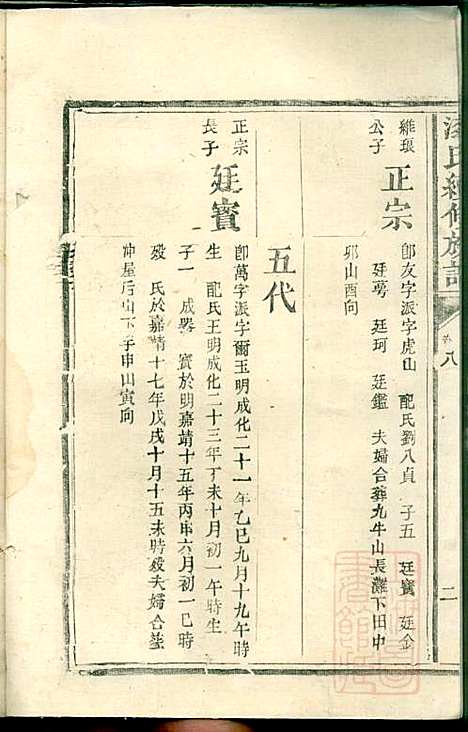 氏續修族譜
卷八
二
維琅公子
正宗
卽友字派字虎山 配氏劉八貞 子五 廷賓 廷金
廷 廷珂 廷鑑 夫婦合葬九牛山長灘下田中
卯山酉向
五代
正宗長子
廷賓
卽萬字派字爾玉明成化二十一年乙巳九月十九午時
生 配氏王明成化二十三年丁未十月初一午時生
子一 成 賓於明嘉靖十五年丙申六月初一巳時
歿 氏於嘉靖十七年戊戌十月十五未時歿夫婦合塟
屋后山下 申山寅向